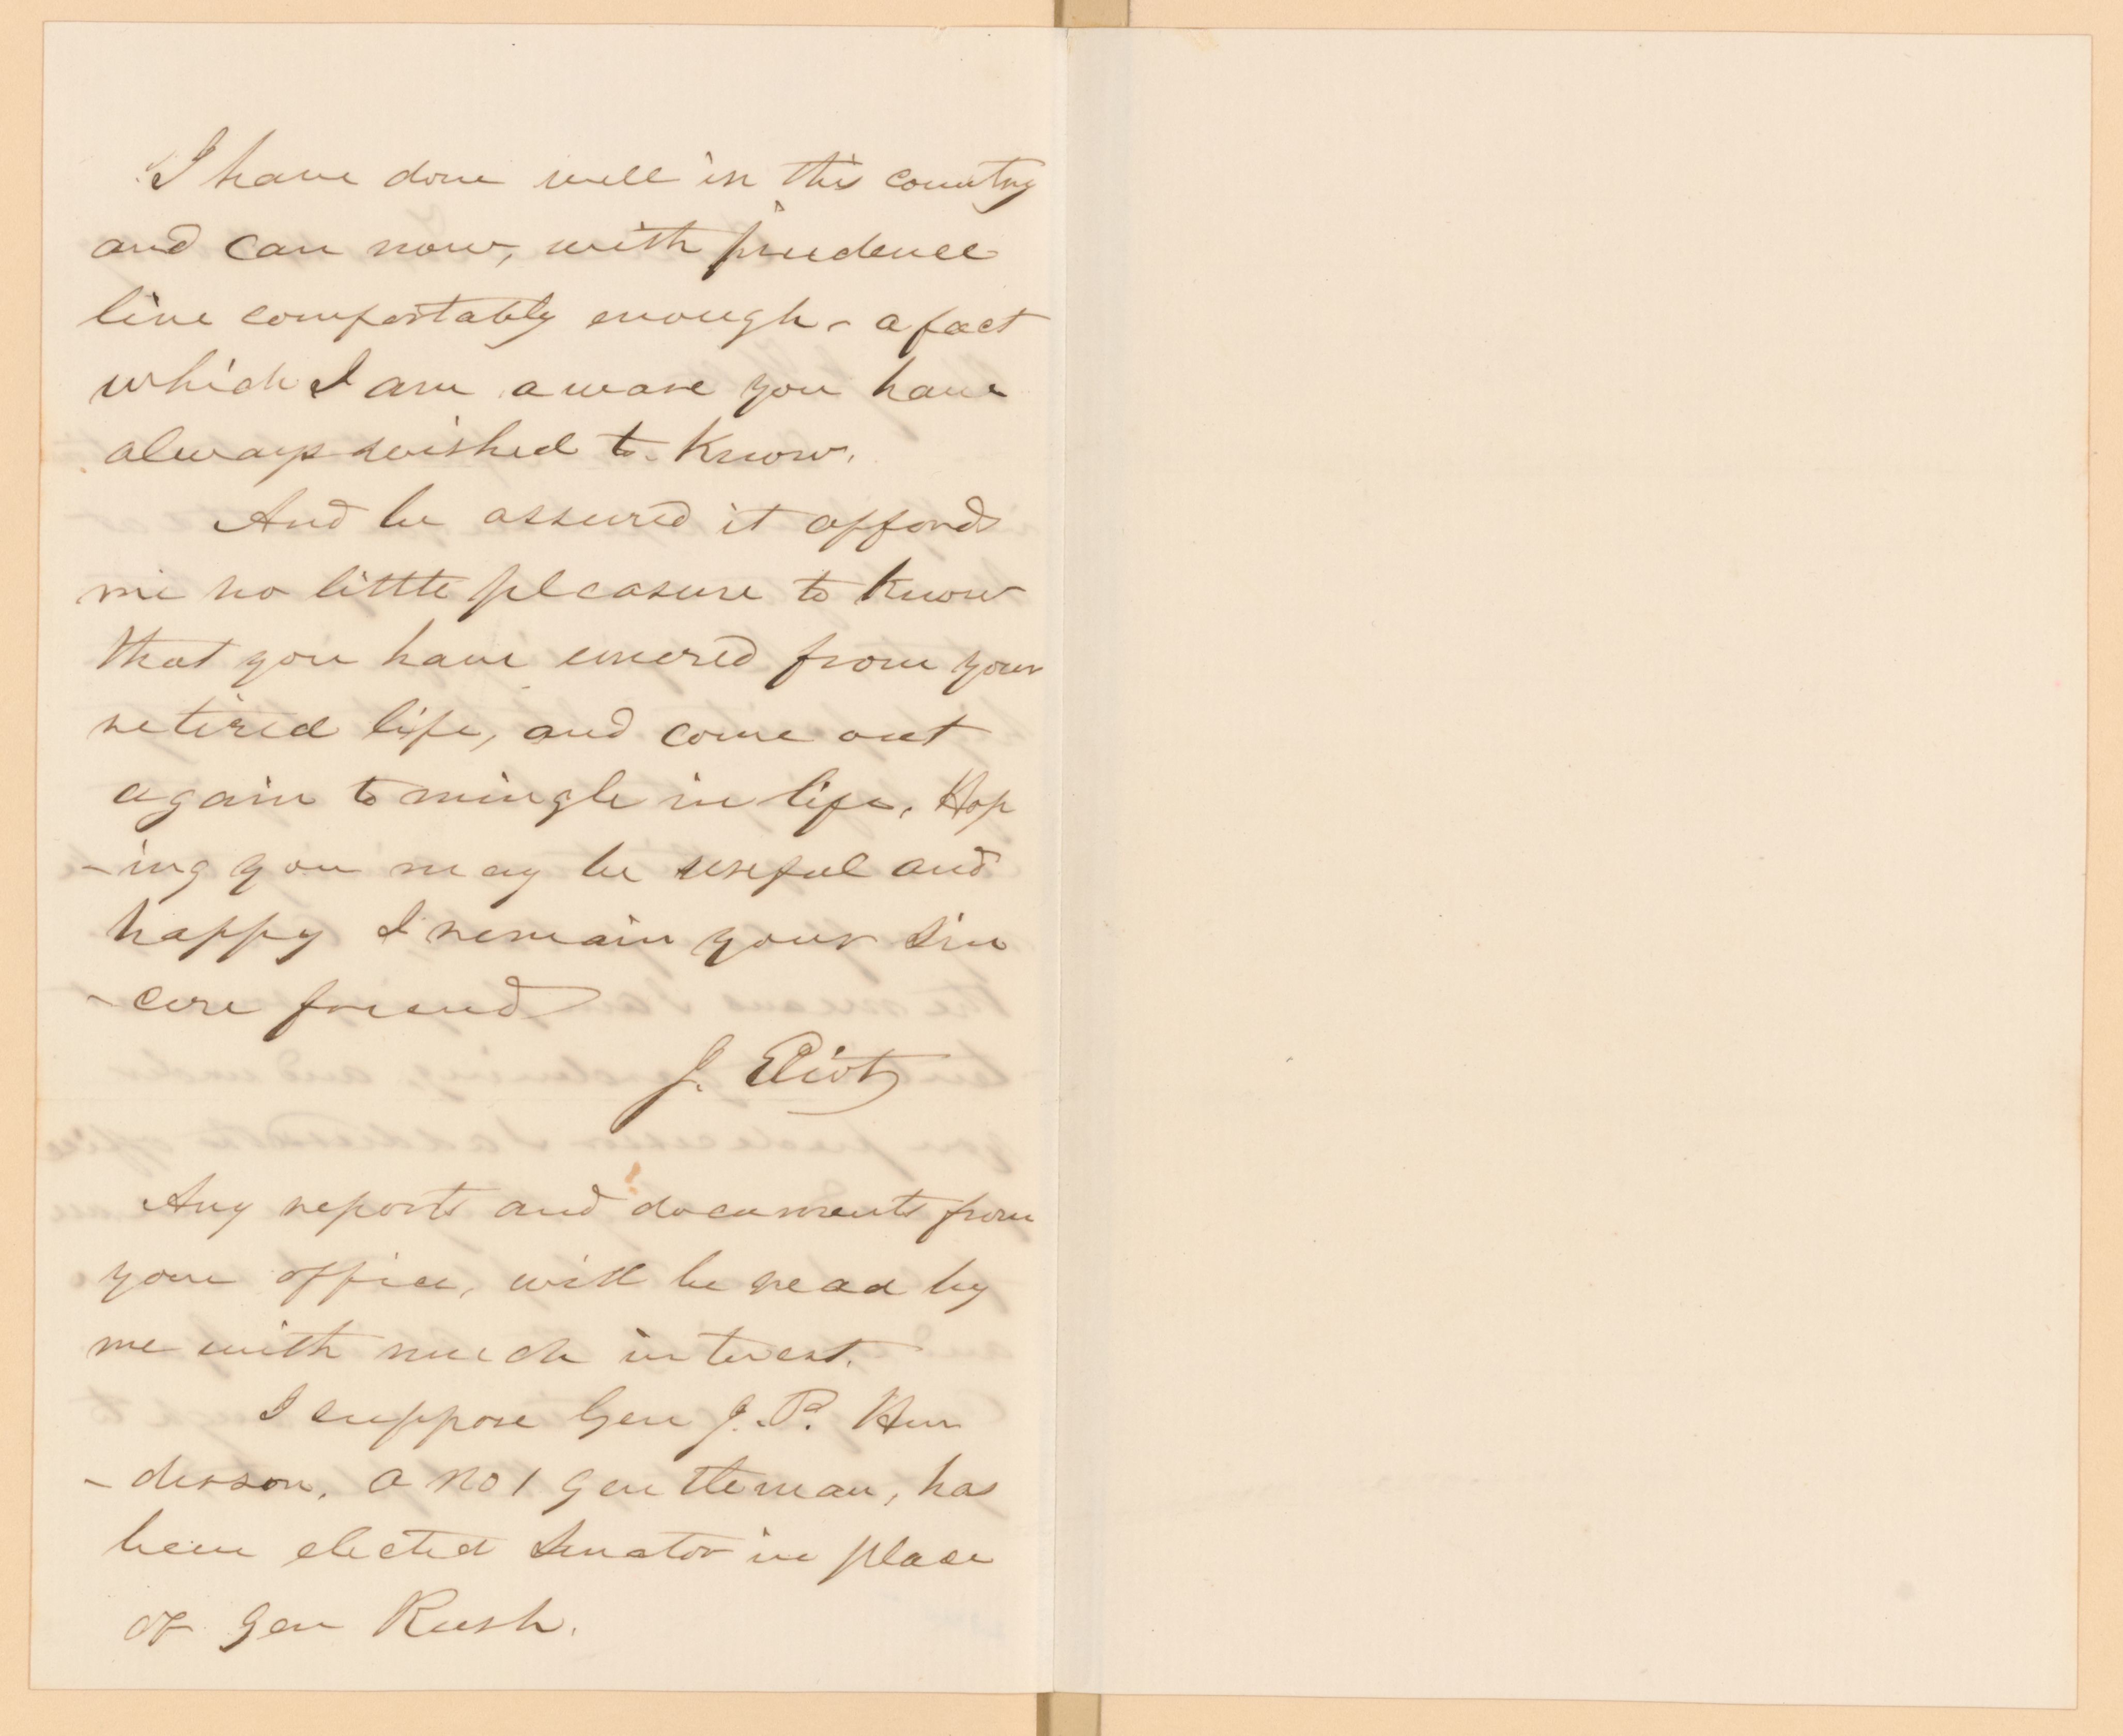 I have done well in this country
and can now, with prudence
live comfortably enough - a fact
which I am aware you have
always wished to know.
And be assured it affords
me no little pleasure to know
that you have emered from your
retired life, and come out
again to mingle in life. Hop
-ing you may be useful and
happy I remain your sin
-cere friend
J. Eliot
Any reports and documents from
your office, will be read by
me with much interest.
I suppose Gen J. P. Hen
-derson, a No 1 gentleman, has
been elected Senator in place
of Gen Rush.